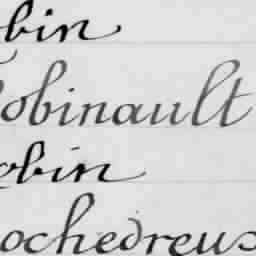 bin
obinault
obin
ochedreux